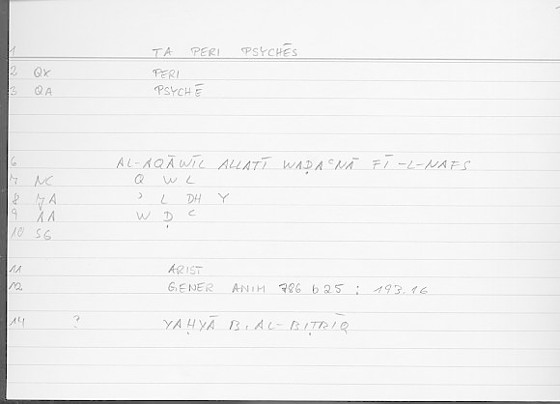 1 TA PERI PSYCHĒS
2 QX PERI
3 QA PSYCHĒ
6 AL-AQĀWĪL ALLATĪ WAḌAʿNĀ FĪ-L-NAFS
7 NC Q W L
8 MA ʾ L DH Y
9 AA W Ḍ ʿ
10 SG
11 ARIST
12 GENER ANIM 786 b25 ; 193.16
14 ? YAḤYĀ B. AL-BIṬRĪQ